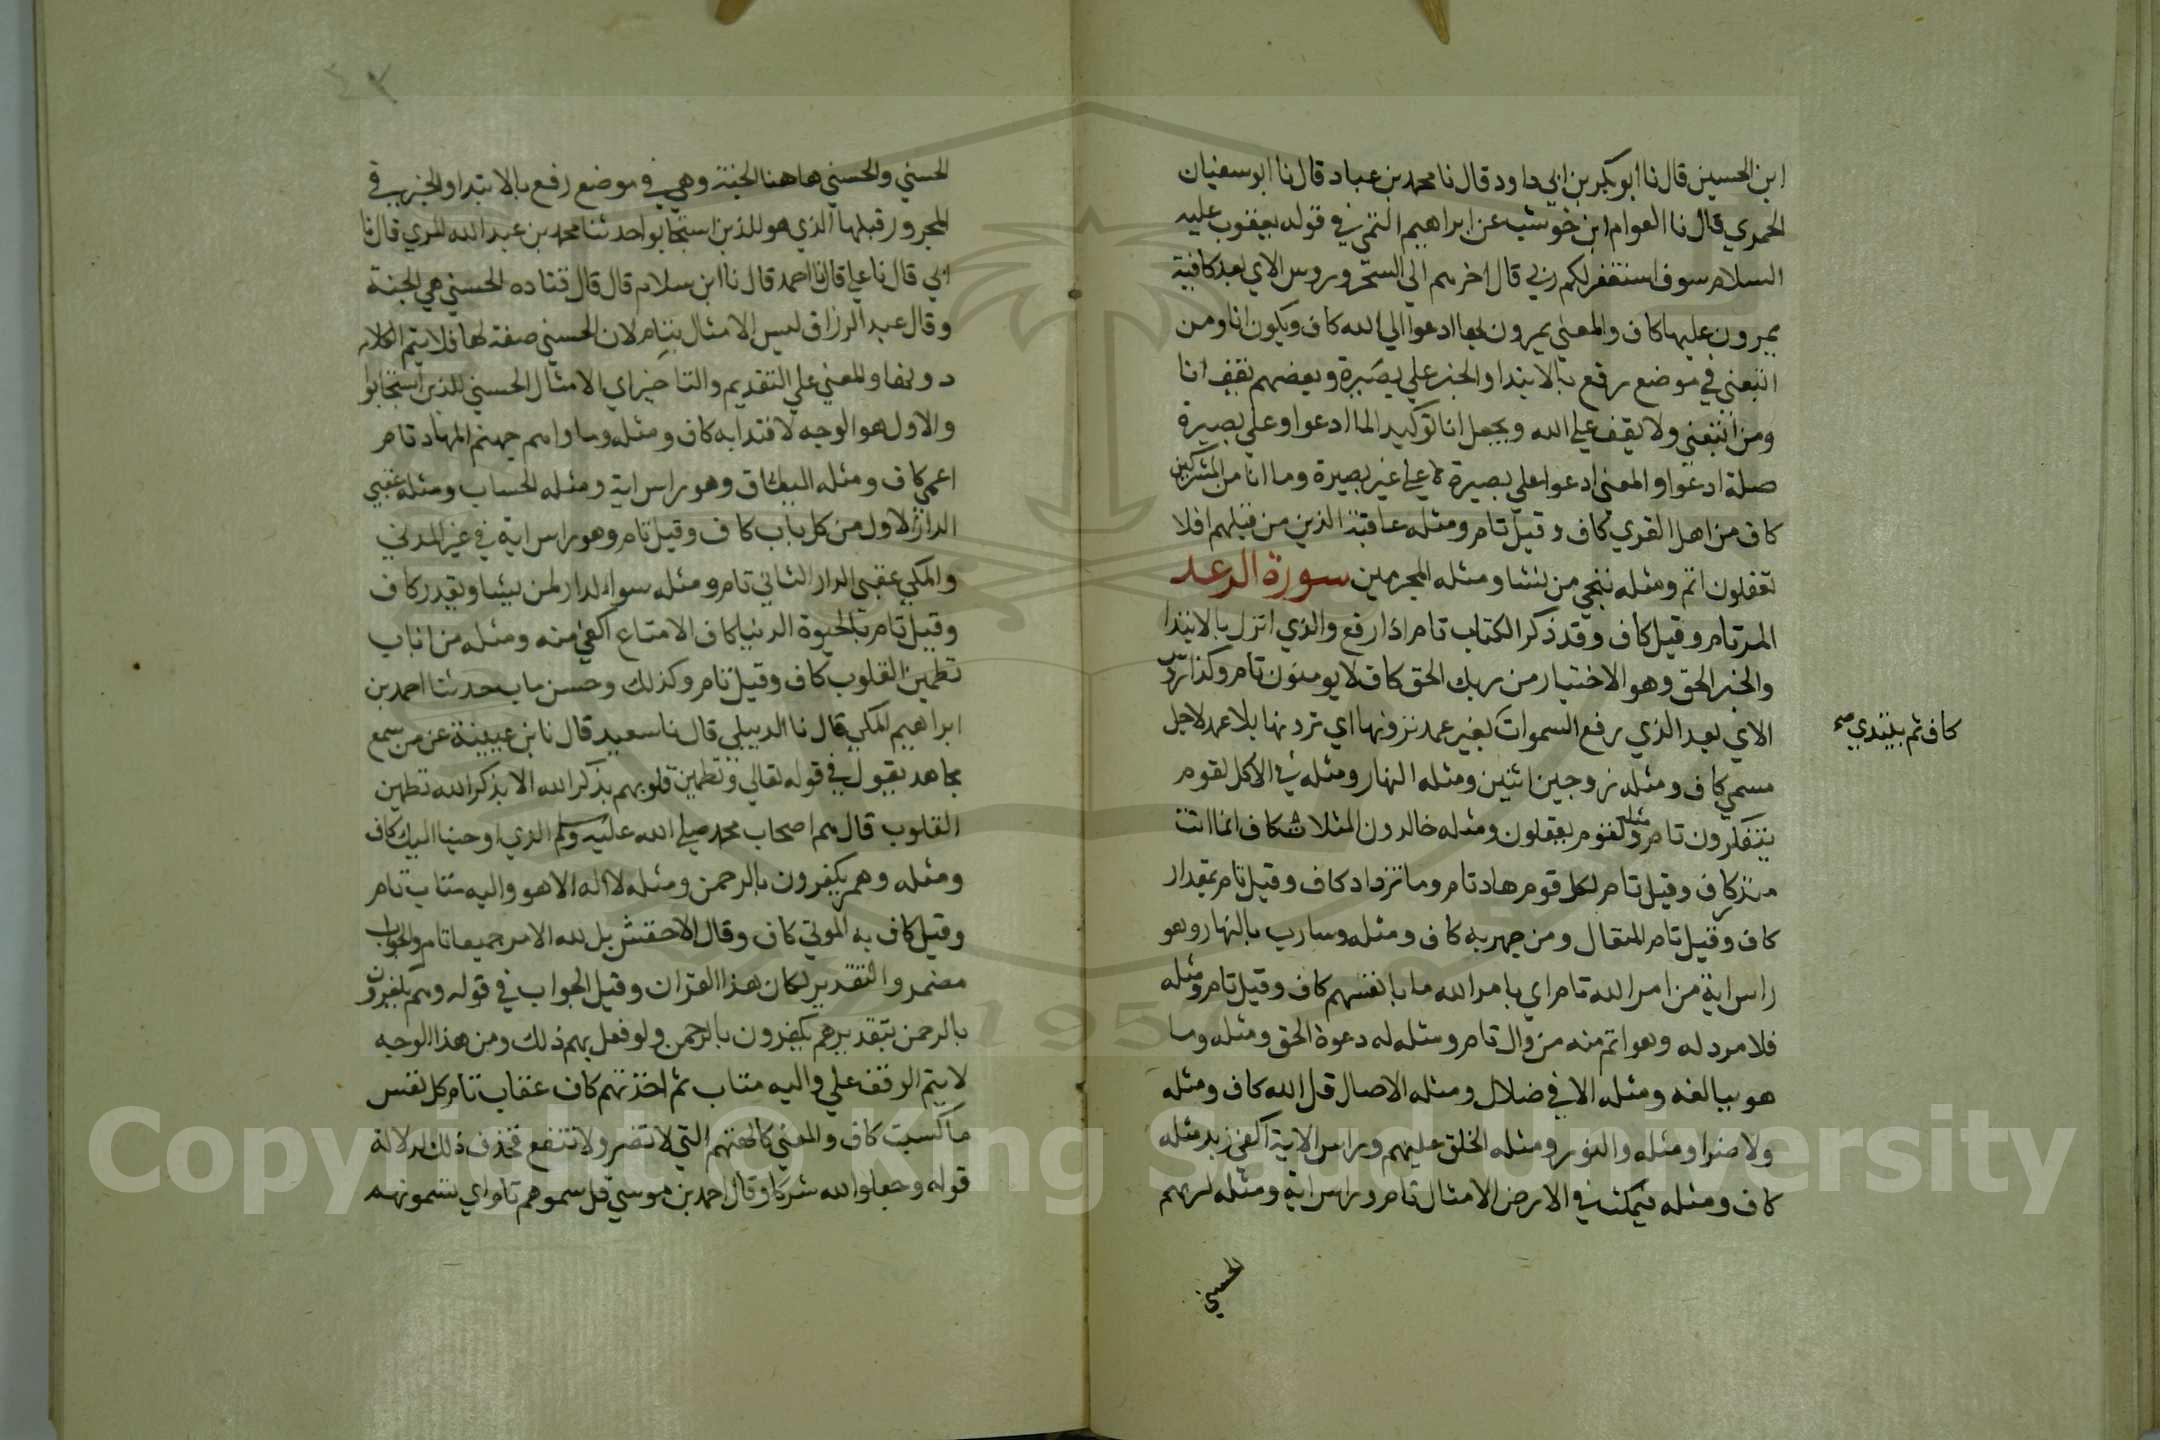 ابن الحسين قال نا ابو بكر بن ابي داود قال نا محمد بن عباد قال نا ابو سفيان
الحمدي قال نا العوام ابن خوشب عن ابراهيم التمي في قوله يعقوب عليه
السلام سوف استغفر لكم ربي قال اخرهم الي السحر وروس الاي بعد كافية
يمرون عليها كاف والمعني يمرون بها ادعوا الي الله كاف ويكون انا ومن
اتبعني في موضع رفع بالابتدا والخبر علي بصيرة وبعضهم يقف انا
ومن اتبعني ولا يقف علي الله ويجعل انا توكيد الما ادعوا وعلي بصيرة
صلة ادعوا والمعني ادعوا علي بصيرة لا علي غير بصيرة وما انا من المشركين
كاف من اهل القري كاف وقيل تام ومثله عاقبة الذين من قبلهم افلا
تعقلون اتم ومثله ننجي من نشا ومثله المجرمين سورة الرعد
المر تام وقيل كاف وقد ذكر الكتاب تام اذا رفع والذي انزل بالابتدا
والخبر الحق وهو الاختيار من ربك الحق كاف لا يومنون تام وكذا
الاي بعد الذي رفع السموات بغير عمد ترونها اي ترونها بلا عمد لاجل
كاف ثم يبتدي صح
مسمي كاف ومثله زوجين اثنين ومثله النهار ومثله في الاكل لقوم
يتفكرون تام ومثله لقوم يعقلون ومثله خالدون المثلات كاف انما انت
منذر كاف وقيل تام لكل قوم هاد تام وما تزداد كاف وقيل تام بمقدار
كاف وقيل تام المتعال ومن جهر به كاف ومثله وسارب بالنهار وهو
راس اية من امر الله تام اي بامر الله ما بانفسهم كاف وقيل تام ومثله
فلا مرد له وهو اتم منه من وال تام ومثله له دعوة الحق ومثله وما
هو ببالغه ومثله الا في ضلال ومثله الاصال قل الله كاف ومثله
ولا ضرا ومثله والنور ومثله الخلق عليهم وراس الاية اكفي زبد مثله
كاف ومثله فيمكث في الارض الامثال تام وراس اية ومثله لربهم
الحسني
الحسني والحسني هاهنا الجنة وهي في موضع رفع بالابتدا والخبر في
المجرور قبلها الذي هو للذين استجابوا حدثنا محمد بن عبد الله المري قال نا
ابي قال نا علي قال نا احمد قال نا ابن سلام قال قال قتاده الحسني هي الجنة
وقال عبد الرزاق ليس الامثال بتام لان الحسني صفة لها فلا يتم الكلام
دونها والمعني علي التقديم والتاخير اي الامثال الحسني للذين استجابوا
والاول هو الوجه لافتدا به كاف ومثله وماواهم جهنم المهاد تام
اعمي كاف ومثله الميثاق وهو راس اية ومثله الحساب ومثله عقبي
الدار الاول من كل باب كاف وقيل تام وهو راس اية في غير المدني
والمكي عقبي الدار الثاني تام ومثله سوء الدار لمن يشا ويقدر كاف
وقيل تام بالحيوة الدنيا كاف الا متاع اكفي منه ومثله من اناب
تطمين القلوب كاف وقيل تام وكذلك وحسن ماب حدثنا احمد بن
ابراهيم المكي قال نا الديبلي قال نا سعيد قال نا بن عيينة عن من سمع
مجاهد يقول في قوله تعالي وتطمين قلوبهم بذكر الله الا بذكر الله تطمين
القلوب قال هم اصحاب محمد صلي الله عليه وسلم الذي اوحينا اليك كاف
ومثله وهم يكفرون بالرحمن ومثله لا اله الا هو واليه متاب تام
وقيل كاف به الموتي كاف وقال الاخفش بل لله الامر جميعا تام والجواب
مضمر والتقدير لكان هذا القران وقيل الجواب في قوله وهم يكفرون
بالرحمن بتقدير هم يكفرون بالرحمن ولو فعل بهم ذلك ومن هذا الوجه
لا يتم الوقف علي واليه متاب ثم اخذتهم كاف عقاب تام كل نفس
ما كسبت كاف والمعني كالهتهم التي لا تضر ولا تنفع فحذف ذلك لدلالة
قوله وجعلوا لله شركا وقال احمد بن موسي قل سموهم تام اي تسمونهم
Copyright © King Saud University
1957